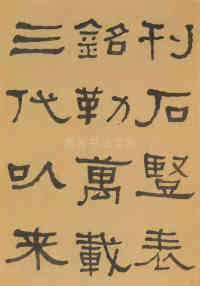 刊石豎表
銘勒萬載
三代以来